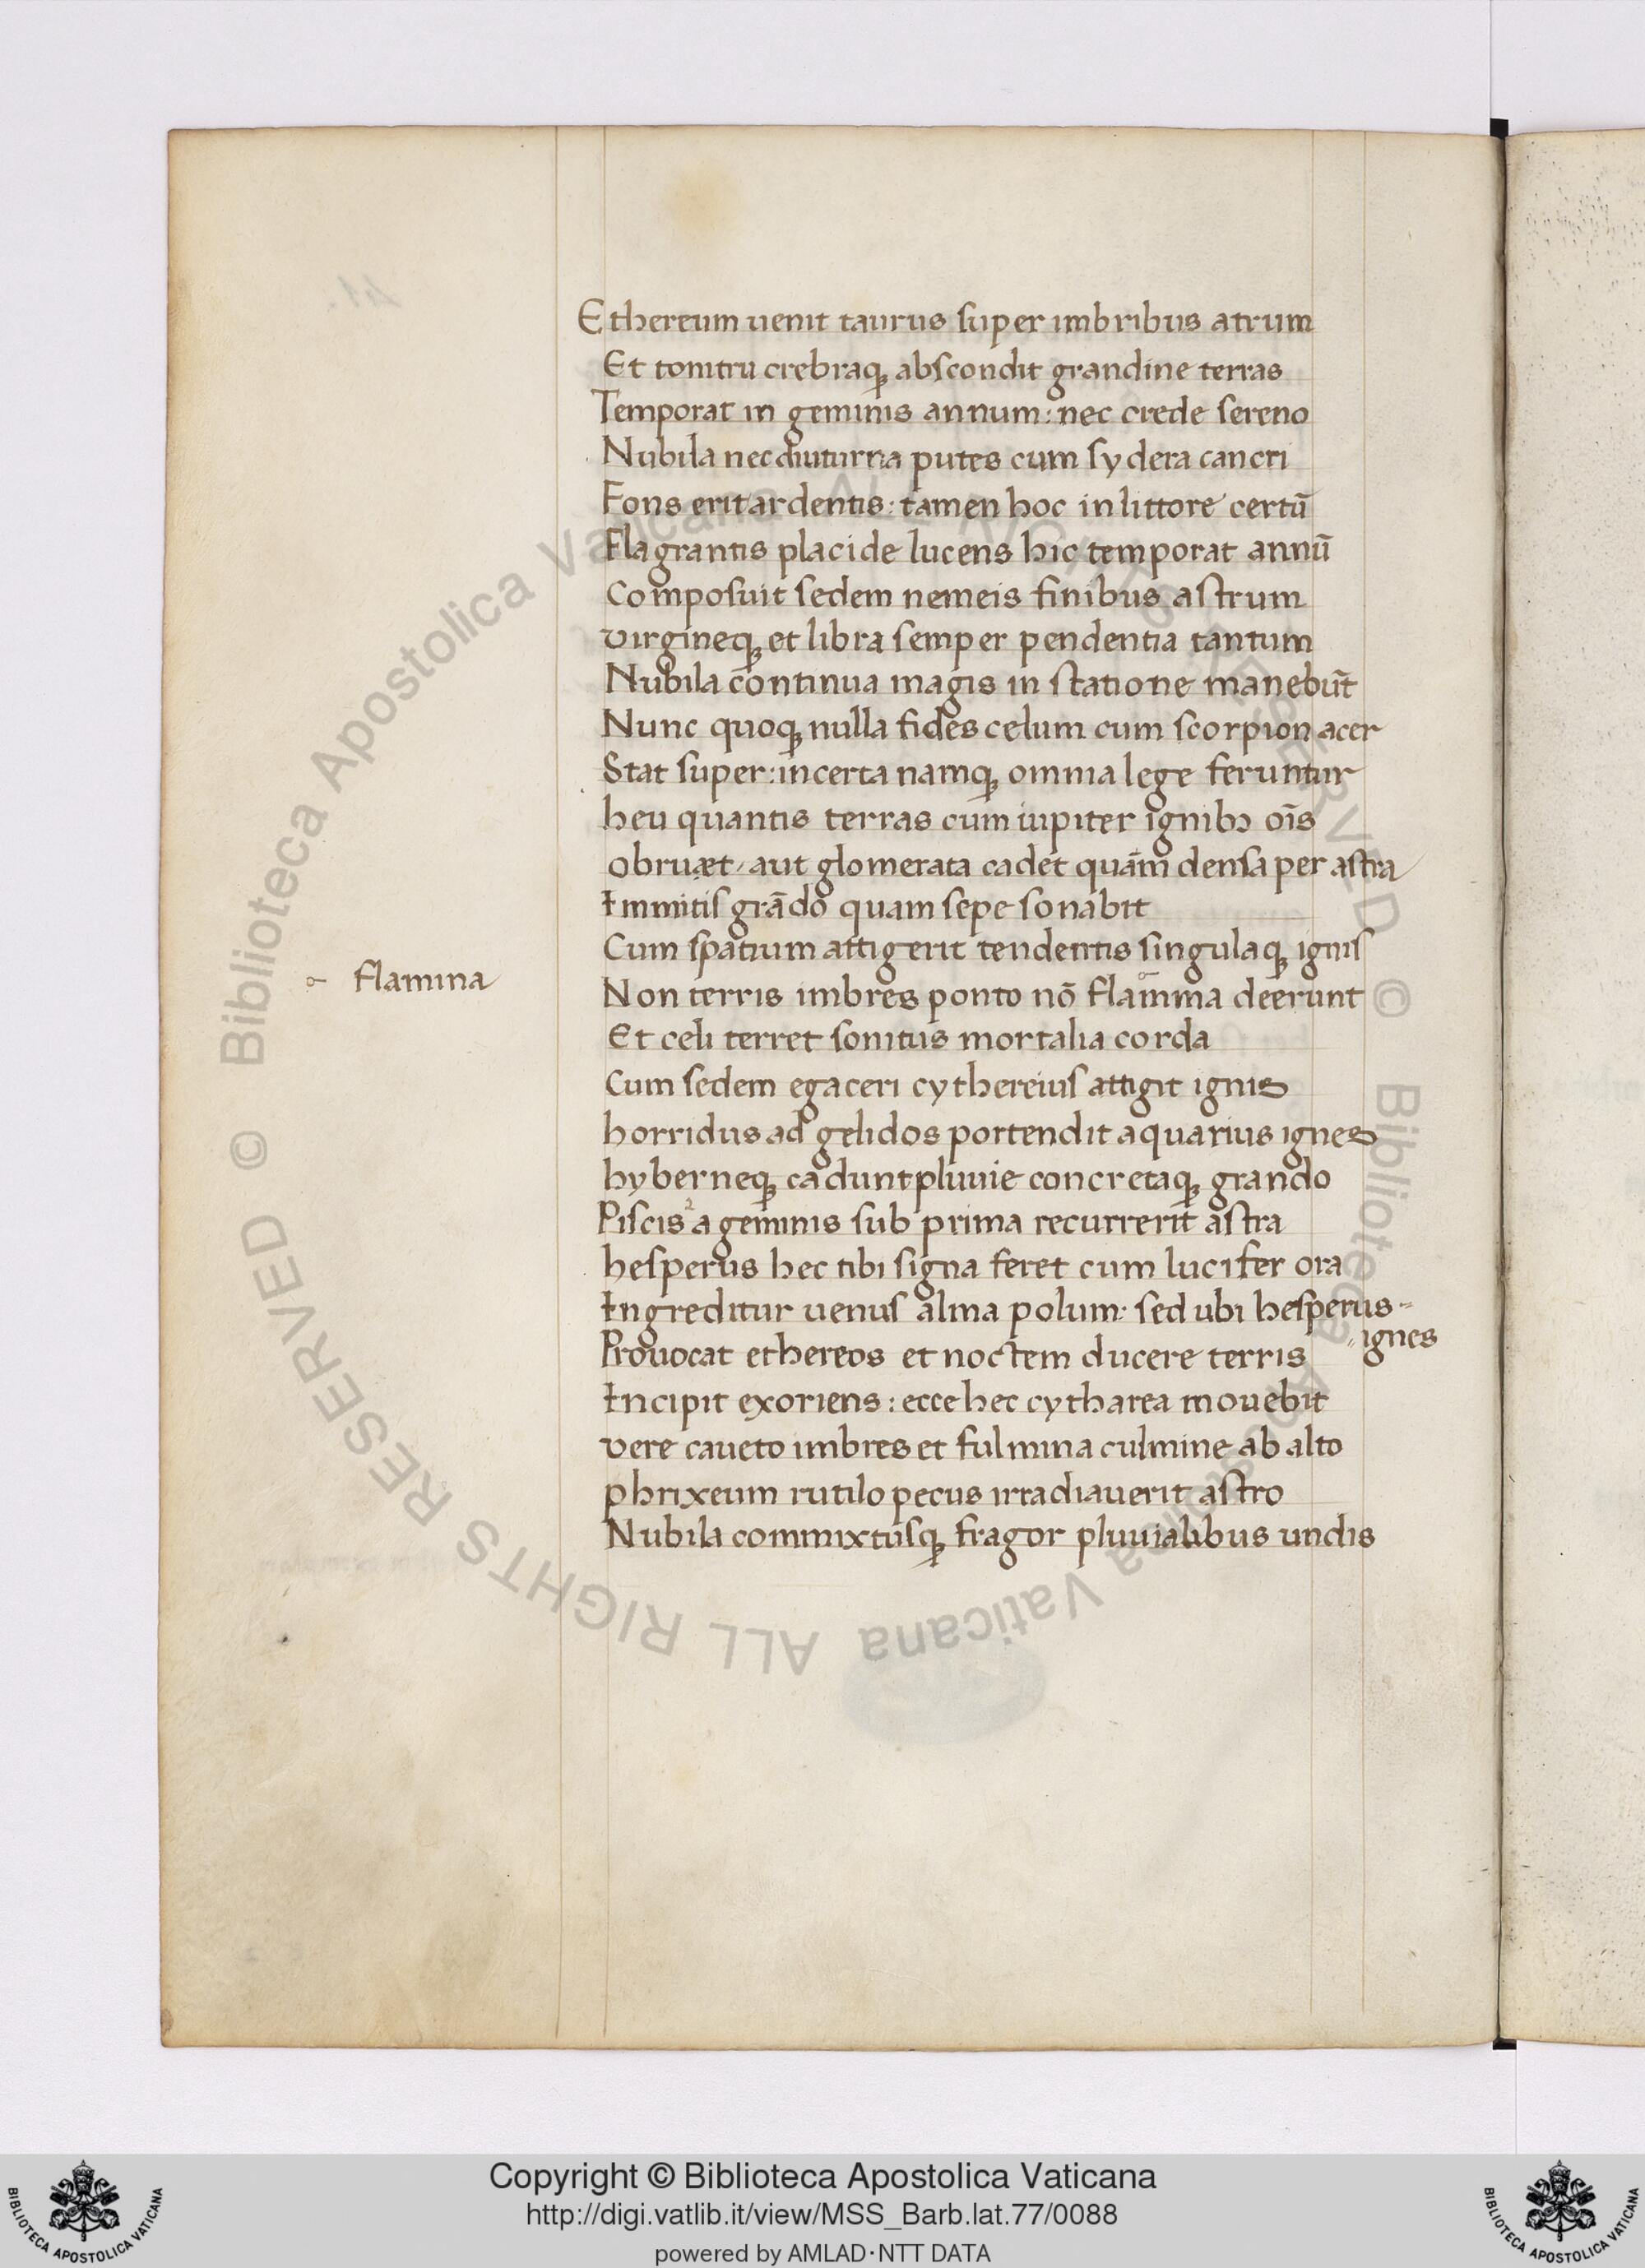 Ethereum uenit taurus super imbribus atrum
Et tonitru crebraq; abscondit grandine terras
Temporat in geminis annum: nec crede sereno
Nubila nec diuturna putes cum sydera cancri
Fons erit ardentis: tamen hoc in littore certū
Flagrantis placide lucens hic temporat annū
Composuit sedem nemeis finibus astrum
virgineq; et libra semper pendentia tantum
Nubila continua magis in statione manebūt
Nunc quoq; nulla fides celum cum scorpion acer
Stat super: incerta namq; omnia lege feruntur
heu quantis terras cum iupiter ignibꝫ oīs
obruæt, aut glomerata cadet quam densa per astra
Immitis grādo quam sepe sonabit
Cum spatium attigerit tendentis singulaq; ignis
flamina
Non terris imbres ponto nō flamma deerunt
Et celi terret sonitus mortalia corda
Cum sedem egaceri cythereius attigit ignis
horridus ad gelidos portendit aquarius ignes
hyberneq; cadunt pluuie concretaq; grando
Piscis a geminis sub prima recurrerit astra
hesperus hec tibi signa feret cum lucifer ora
Ingreditur uenus alma polum: sed ubi hesperus
ignes
Prouocat ethereos et noctem ducere terris
Incipit exoriens: ecce hec cytharea mouebit
vere caueto imbres et fulmina culmine ab alto
phrixeum rutilo pecus irradiauerit astro
Nubila commixtusq; fragor pluuialibus undis
© Biblioteca Apostolica Vaticana ALL RIGHTS RESERVED © Biblioteca Apostolica Vaticana ALL RIGHTS RESERVED
BIBLIOTECA APOSTOLICA VATICANA
Copyright © Biblioteca Apostolica Vaticana
http://digi.vatlib.it/view/MSS_Barb.lat.77/0088
powered by AMLAD·NTT DATA
BIBLIOTECA APOSTOLICA VATICANA